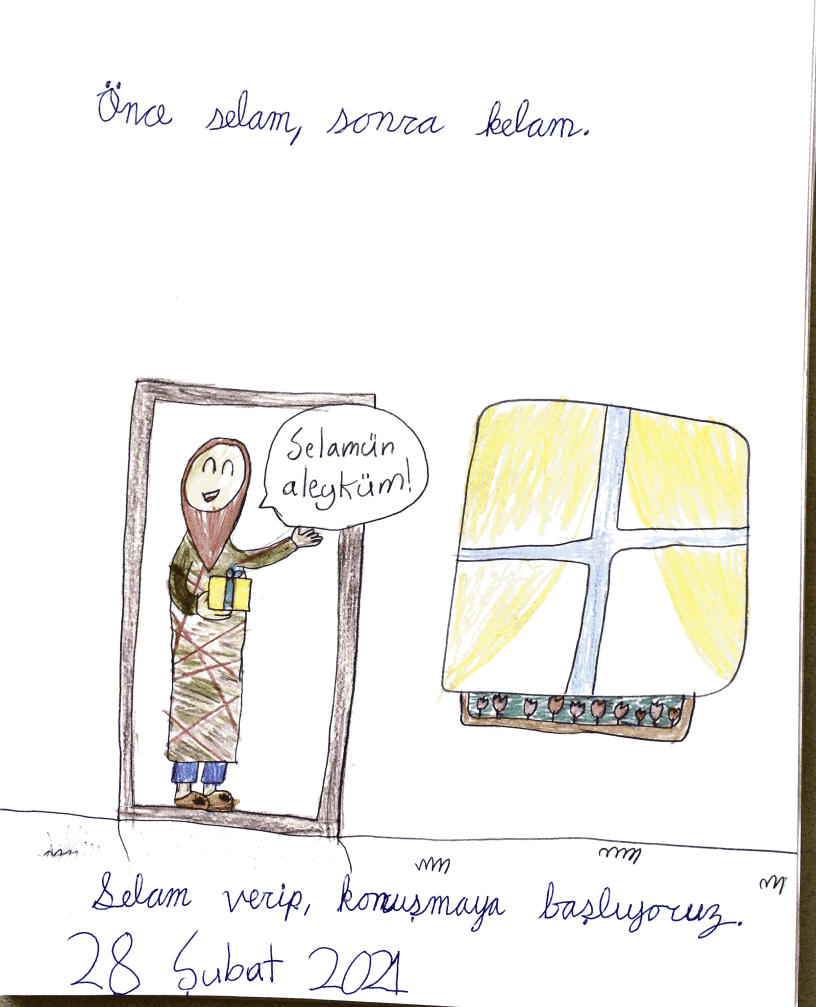 Önce selam, sonra kelam.
Selamün
aleyküm!
Selam verip, konuşmaya başlıyoruz.
28 Şubat 2021